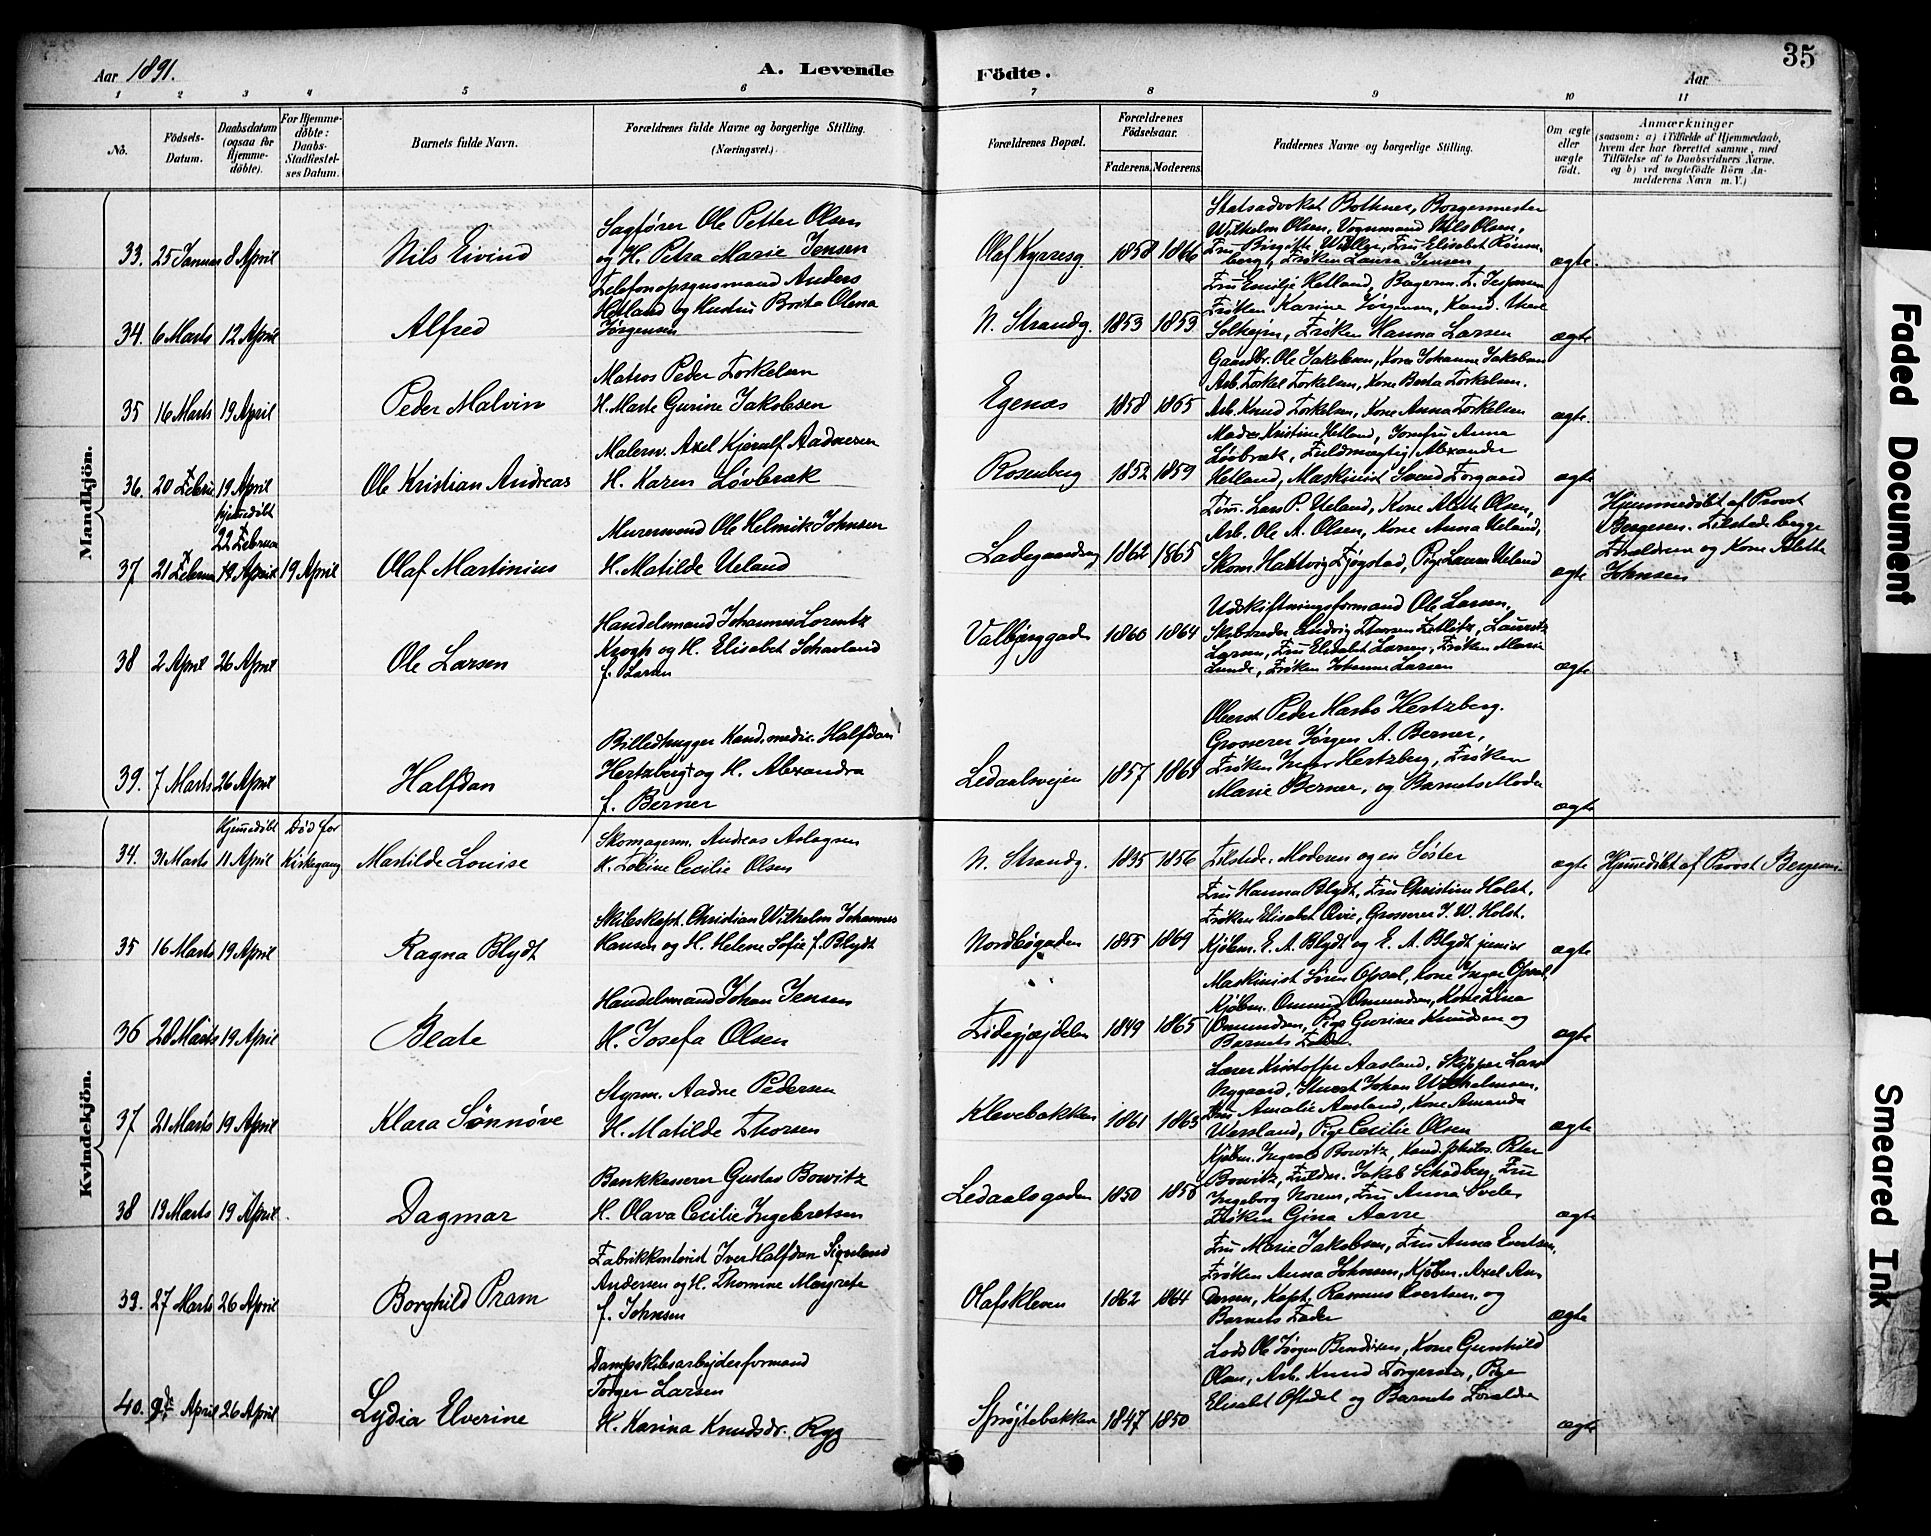 Aar 1891.
A. Levende
Födte.
Aar
35
1
2
3
4
5
6
7
8
9
10
11
No.
Födsels-
Datum.
Daabsdatum
(ogsaa for
Hjemme-
döbte).
For Hjemme-
döbte:
Daabs-
Stadfæstel-
ses Datum.
Barnets fulde Navn.
Forældrenes fulde Navne og borgerlige Stilling.
(Næringsvei.)
Forældrenes Bopæl.
Forældrenes
Födselsaar.
Faderens.
Moderens.
Faddernes Navne og borgerlige Stilling.
Om ægte
eller
uægte
födt.
Anmærkninger
(saasom: a) i Tilfælde af Hjemmedaab,
hvem der har forrettet samme, med
Tilföielse af to Daabsvidners Navne,
og b) ved uægtefödte Börn An-
melderens Navn m. V.)
Mandkjön.
33. 25 Januar 8 April
Nils Eivind
Sagfører Ole Petter Olsen
og H. Petra Marie Jensen
Olaf Kyrresg. 1858 1866
Statsadvokat Bothner, Borgermester
Wilhelm Olsen, Vognmand Nils Olsen,
Fru Birgitte Fru Elisabet
Frøken Laura Jensen
ægte
34. 6 Marts 12 April
Alfred
Telefonopsynsmand Anders
Hetland og Hustru Berta Olena
Jørgensen
N. Strandg. 1853 1853
Fru Emilie Hetland, Bagerm. L. Jespersen
Frøken Karine Jørgensen, Kand.
Frøken Hanna Larsen
ægte
35 16 Marts 19 April
Peder Malvin
Matros Peder Torkelsen
H. Marte Gurine Jakobsen
Egenæs 1858 1865
Gaardbr. Ole Jakobsen, Kone Johanne Jakobsen
Arb. Torkel Torkelsen, Kone Berta Torkelsen.
Arb. Knud Torkelsen, Kone Anna Torkelsen
ægte.
36. 20 Februar 19 April
Ole Kristian Andreas
Malerm. Axel Kjerulf Aadnesen
H. Karen Løvbræk
Rosenberg 1852 1859
Kristine Hetland, Jomfru Anna
Løvbræk, Fuldmægtig Alexander
Hetland, Maskinist Svend Torgaard
ægte
37 21 Februar
hjemmedöbt
22 Februar
19 April
19 April
Olaf Martinius
Murermand Ole Helmik Johnsen
H. Matilde Ueland
Ladegaardsvg 1862 1865
Tøm. Lars P. Ueland, Kone Olsen,
Arb. Ole A. Olsen, Kone Anna Ueland,
Skom. Hartvig Fjøgstad, Pige Laura Ueland
ægte
Hjemmedöbt af Provst
Bergesen. Tilstede begge
Forældrene og Kone Alette
Johnsen
38 2 April 26 April
Ole Larsen
Handelsmand Johannes Lorentz
Krogh og H. Elisabet Schavland
f. Larsen
Valbjerggaden 1860 1864
Udskiftningsformand Ole Larsen,
Skibsreder Ludvig Thorsen Zetlitz, Lauritz
Larsen, Fru Elisabet Larsen, Frøken Marie
Lunde, Frøken Johanne Larsen
ægte
39. 7 Marts 26 April
Halfdan
Billedhugger Kand. medic. Halfdan
Hertzberg og H. Alexandra
f. Berner
Ledaalsveien 1857 1868
Oberst Peder Harbo Hertzberg.
Grosserer Jørgen A. Berner,
Frøken Inger Hertzberg, Frøken
Marie Berner, og Barnets Moder
ægte
Kvindekjön.
34. 31 Marts
Hjemmedöbt
11 April
Død før
Kirkegang
Matilde Louise
Skomagerm. Andreas Aslagsen
H. Tobine Cecilie Olsen
N. Strandg. 1835 1856
Tilstede. Moderen og en Søster
ægte
Hjemmedöbt af Provst Bergesen.
35 16 Marts 19 April
Ragna Blydt
Skibskapt. Christian Wilhelm Johannes
Hansen og H. Helene Sofie f. Blydt
Nordbøgaden 1855 1869
Fru Hanna Blydt, Fru Christine Holst.
Frøken Elisabet Grosserer J. W. Holst.
Kjøbm. E. A. Blydt og E. A. Blydt junior
ægte
36 28 Marts 19 April
Beate
Handelsmand Johan Jensen
H. Josefa Olsen
1849 1865
Maskinist Søren Opsal, Kone Inger Opsal,
Kjøbm. Ommund Omundsen, Kone Lina
Omundsen, Pige Gurine Knudsen og
Barnets Fader.
ægte
37 21 Marts 19 April
Klara Sønnøve
Styrm. Aadne Pedersen
H. Matilde Thorsen
Klevebakken 1861 1865
Lærer Kristoffer Aasland, Skipper Lars
Nygaard, Stuert Johan Wilhelmsen,
Fru Amalie Aasland, Kone Amanda
Wersland, Pige Cecilie Olsen
ægte
38 19 Marts 19 April
Dagmar
Bankkasserer Gustav Bowitz
H. Olava Cecilie Ingebretsen
Ledaalsgaden 1850 1858
Kjøbm. Ingvald Bowitz, Kand. philos. Peter
Bowitz, Fuldm. Jakob Schadberg, Fru
Ingeborg Norem, Fru Anna
Frøken Gina Aarre
ægte
39. 27 Marts 26 April
Borghild Pram
Fabrikkontorist Iver Halfdan
Andersen og H. Thomine Margrete
f. Johnsen
Olafskleven 1862 1864
Fru Marie Jakobsen, Fru Anna Evertsen,
Frøken Anna Johnsen, Kjøbm. Axel An-
dersen, Kapt. Rasmus Evertsen, og
Barnets Fader
ægte
40. April 26 April
Lydia Elverine
Dampskibsarbeiderformand
Torger Larsen
H. Karina Knudsdr. Ryg
Sprøjtebakken 1847 1850
Lods Ole Jørgen Bendixen, Kone Gunhild
Olsen, Arb. Knud Torgersen, Pige
Elisabet Oftedal og Barnets Forældre
ægte
Faded Document
Smeared Ink